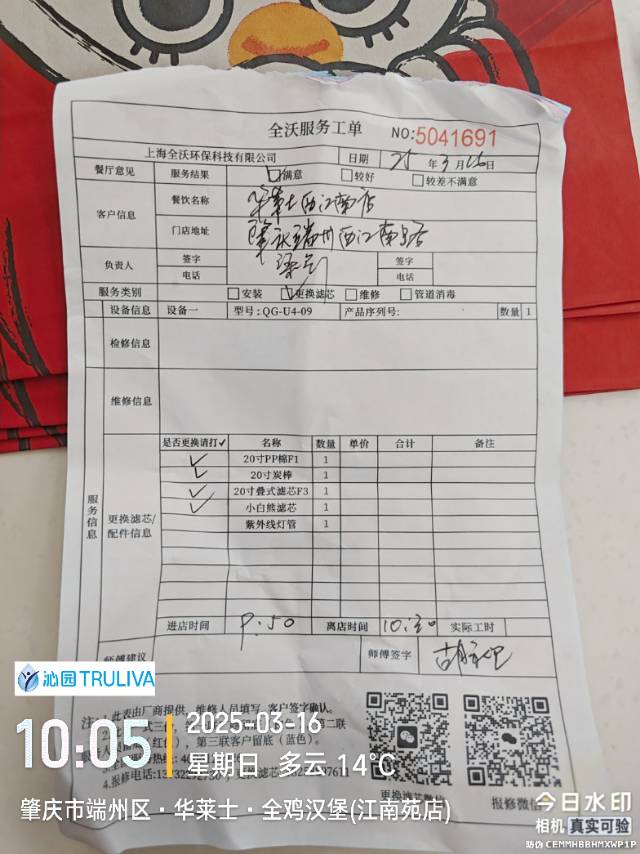 全沃服务工单
NO:5041691
上海全沃环保科技有限公司 日期 25 年 3 月 16 日
餐厅意见 服务结果 满意 较好 较差不满意
客户信息 餐饮名称 华莱士西江南店
门店地址 肇庆端州西江南路
负责人 签字 签字
电话 电话
服务类别 安装 更换滤芯 维修 管道消毒
设备信息 设备一 型号:QG-U4-09 产品序列号: 数量 1
检修信息
维修信息
服务信息
更换滤芯/配件信息
是否更换请打✓ 名称 数量 单价 合计 备注
✓ 20寸PP棉F1 1
✓ 20寸炭棒 1
✓ 20寸叠式滤芯F3 1
✓ 小白熊滤芯 1
紫外线灯管 1
进店时间 9:50 离店时间 10:30 实际工时
师傅建议 师傅签字
沁园 TRULIVA
注:1.此表由厂商提供,维修人员填写,客户签字确认。
第三联客户留底(蓝色)。
4.报修电话:
更换滤芯微信 报修微信
10:05
2025-03-16
星期日 多云 14℃
肇庆市端州区·华莱士·全鸡汉堡(江南苑店)
今日水印
相机 真实可验
防伪 CEMMHBBHMXWP1P